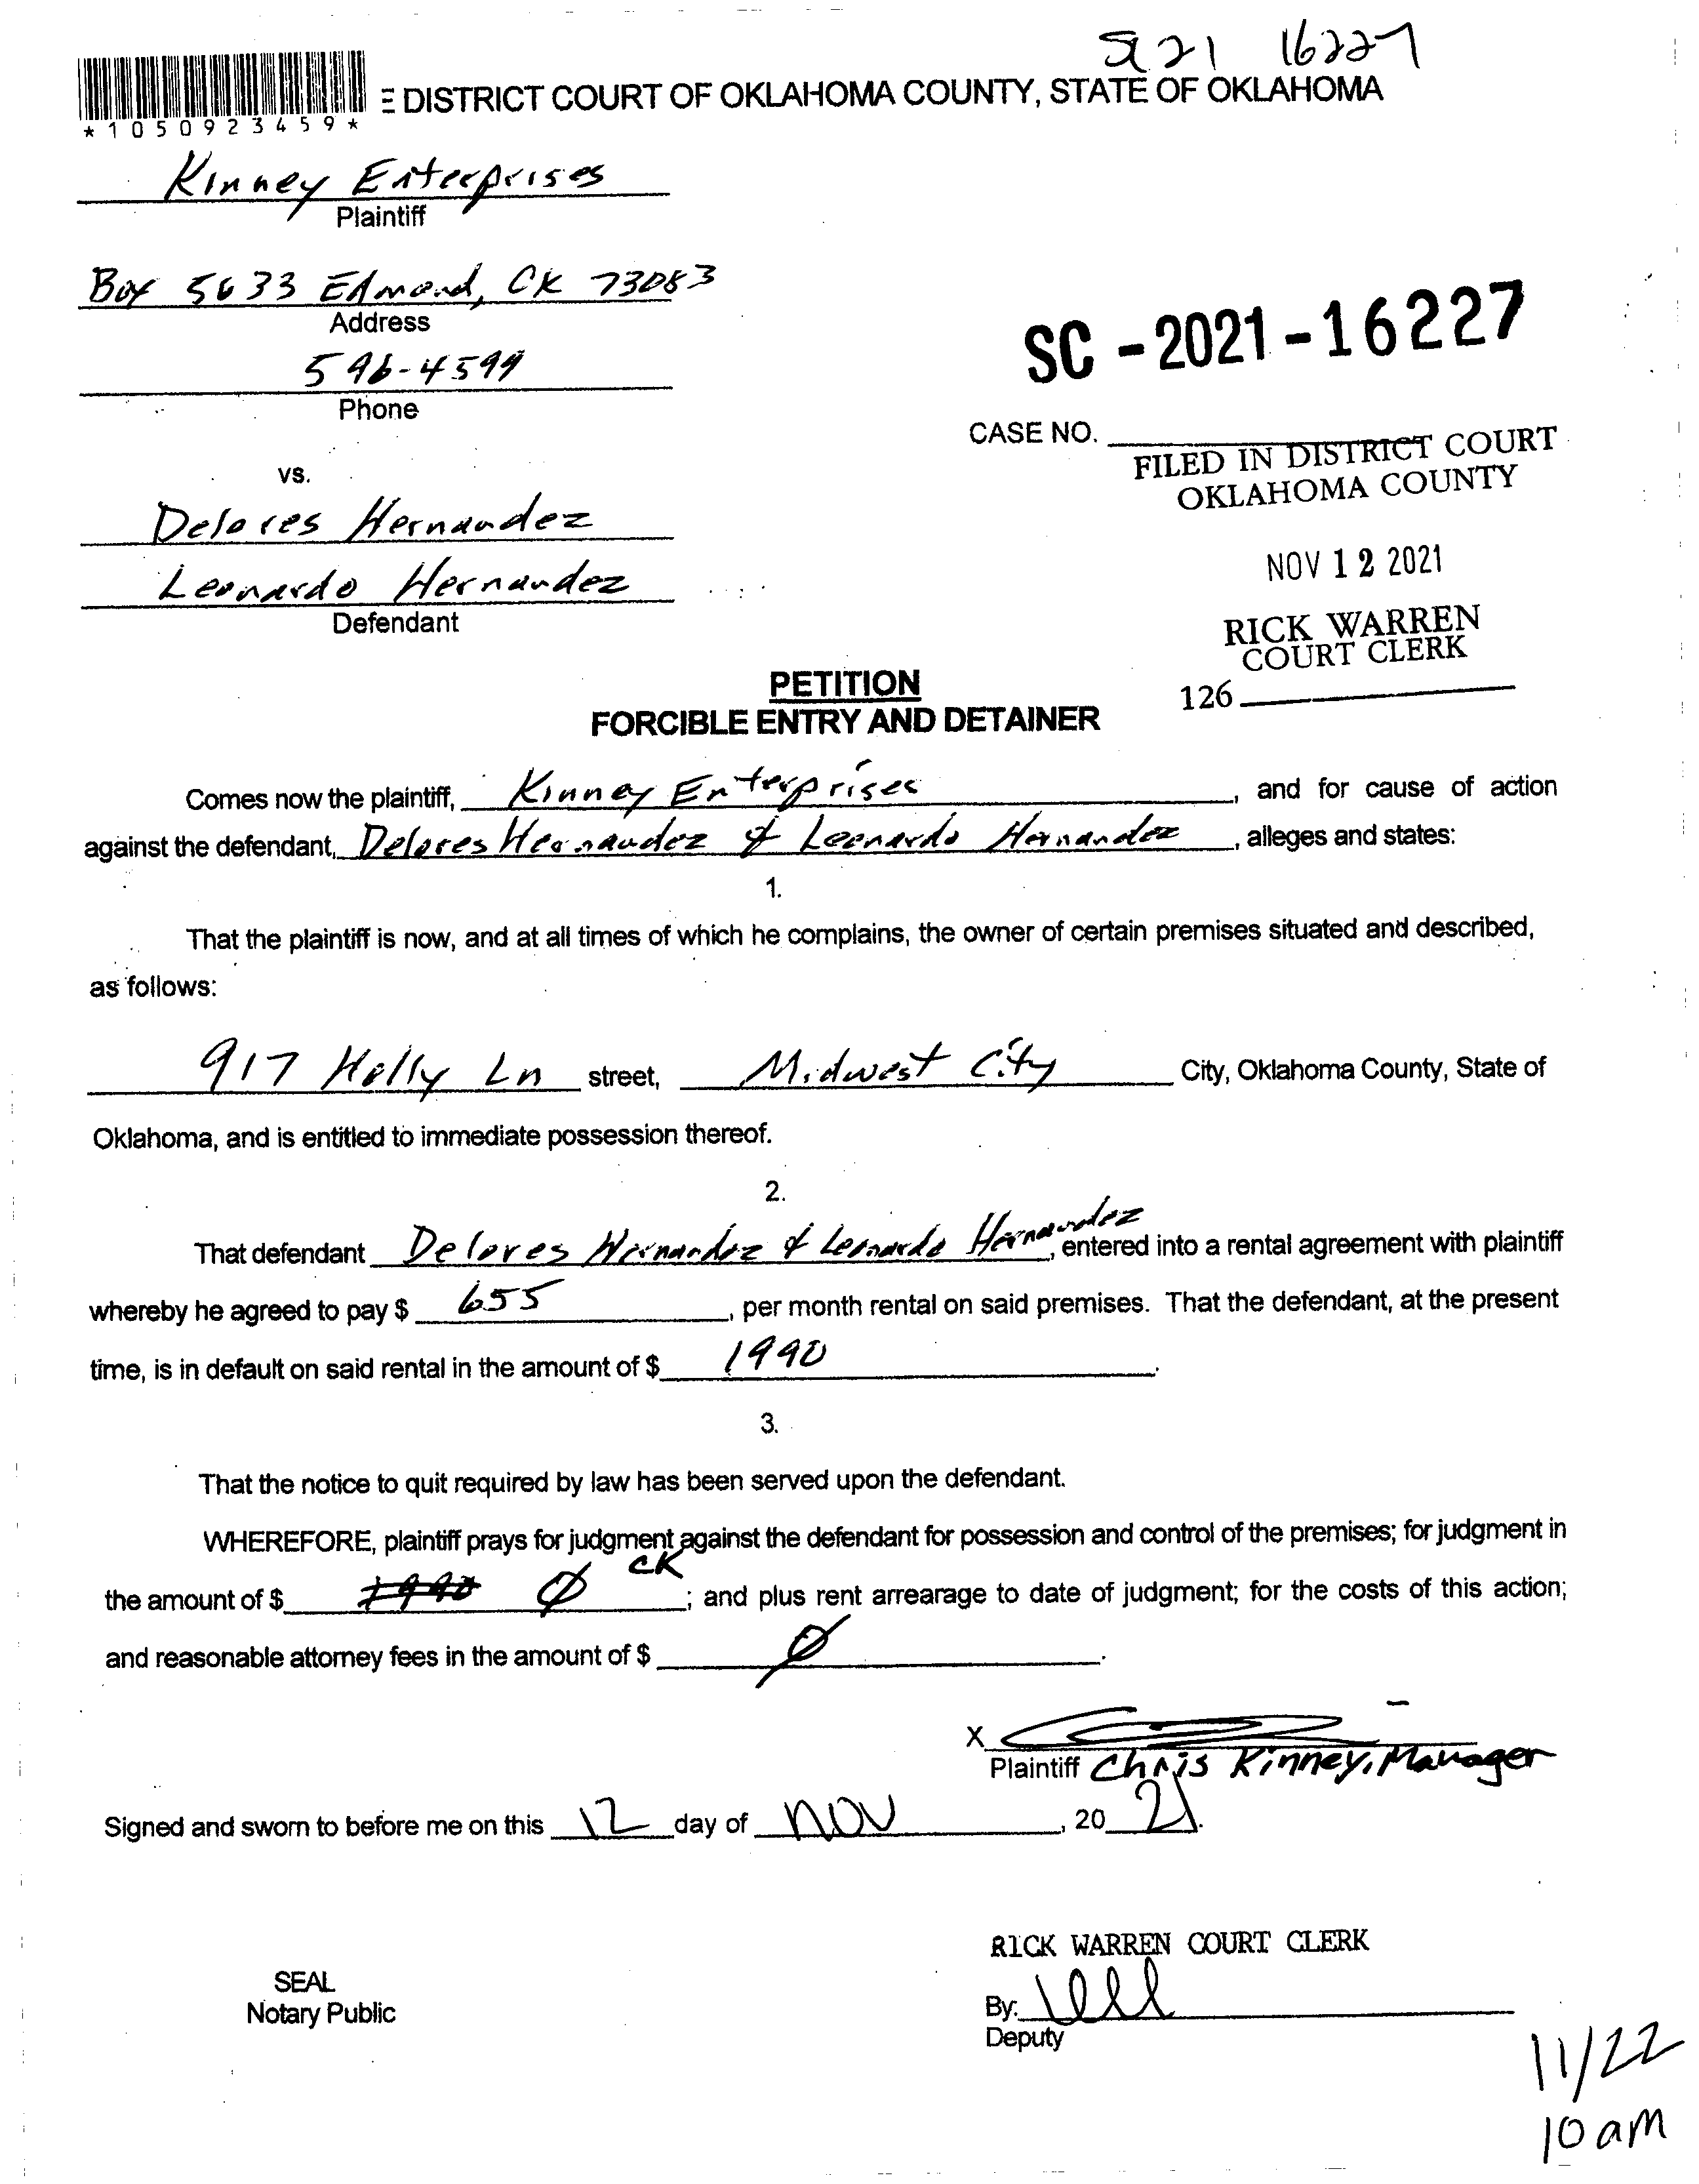 SC 21 16227
E DISTRICT COURT OF OKLAHOMA COUNTY, STATE OF OKLAHOMA
*1050923459*
Kinney Enterprises
Plaintiff
Box 5633 Edmond, OK 73083
Address
596-4599
Phone
SC-2021-16227
CASE NO.
FILED IN DISTRICT COURT
OKLAHOMA COUNTY
vs.
Delores Hernandez
NOV 12 2021
Leonardo Hernandez
Defendant
RICK WARREN
COURT CLERK
126
PETITION
FORCIBLE ENTRY AND DETAINER
Comes now the plaintiff, Kinney Enterprises, and for cause of action
against the defendant, Delores Hernandez & Leonardo Hernandez, alleges and states:
1.
That the plaintiff is now, and at all times of which he complains, the owner of certain premises situated and described,
as follows:
917 Holly Ln street, Midwest City City, Oklahoma County, State of
Oklahoma, and is entitled to immediate possession thereof.
2.
That defendant Delores Hernandez & Leonardo Hernandez, entered into a rental agreement with plaintiff
whereby he agreed to pay $ 655, per month rental on said premises. That the defendant, at the present
time, is in default on said rental in the amount of $ 1990.
3.
That the notice to quit required by law has been served upon the defendant.
WHEREFORE, plaintiff prays for judgment against the defendant for possession and control of the premises; for judgment in
the amount of $ 1990 Ø CK; and plus rent arrearage to date of judgment; for the costs of this action;
and reasonable attorney fees in the amount of $ Ø.
X
Plaintiff Chris Kinney, Manager
Signed and sworn to before me on this 12 day of NOV, 20 21.
RICK WARREN COURT CLERK
SEAL
Notary Public
By:
Deputy
11/22
10 am